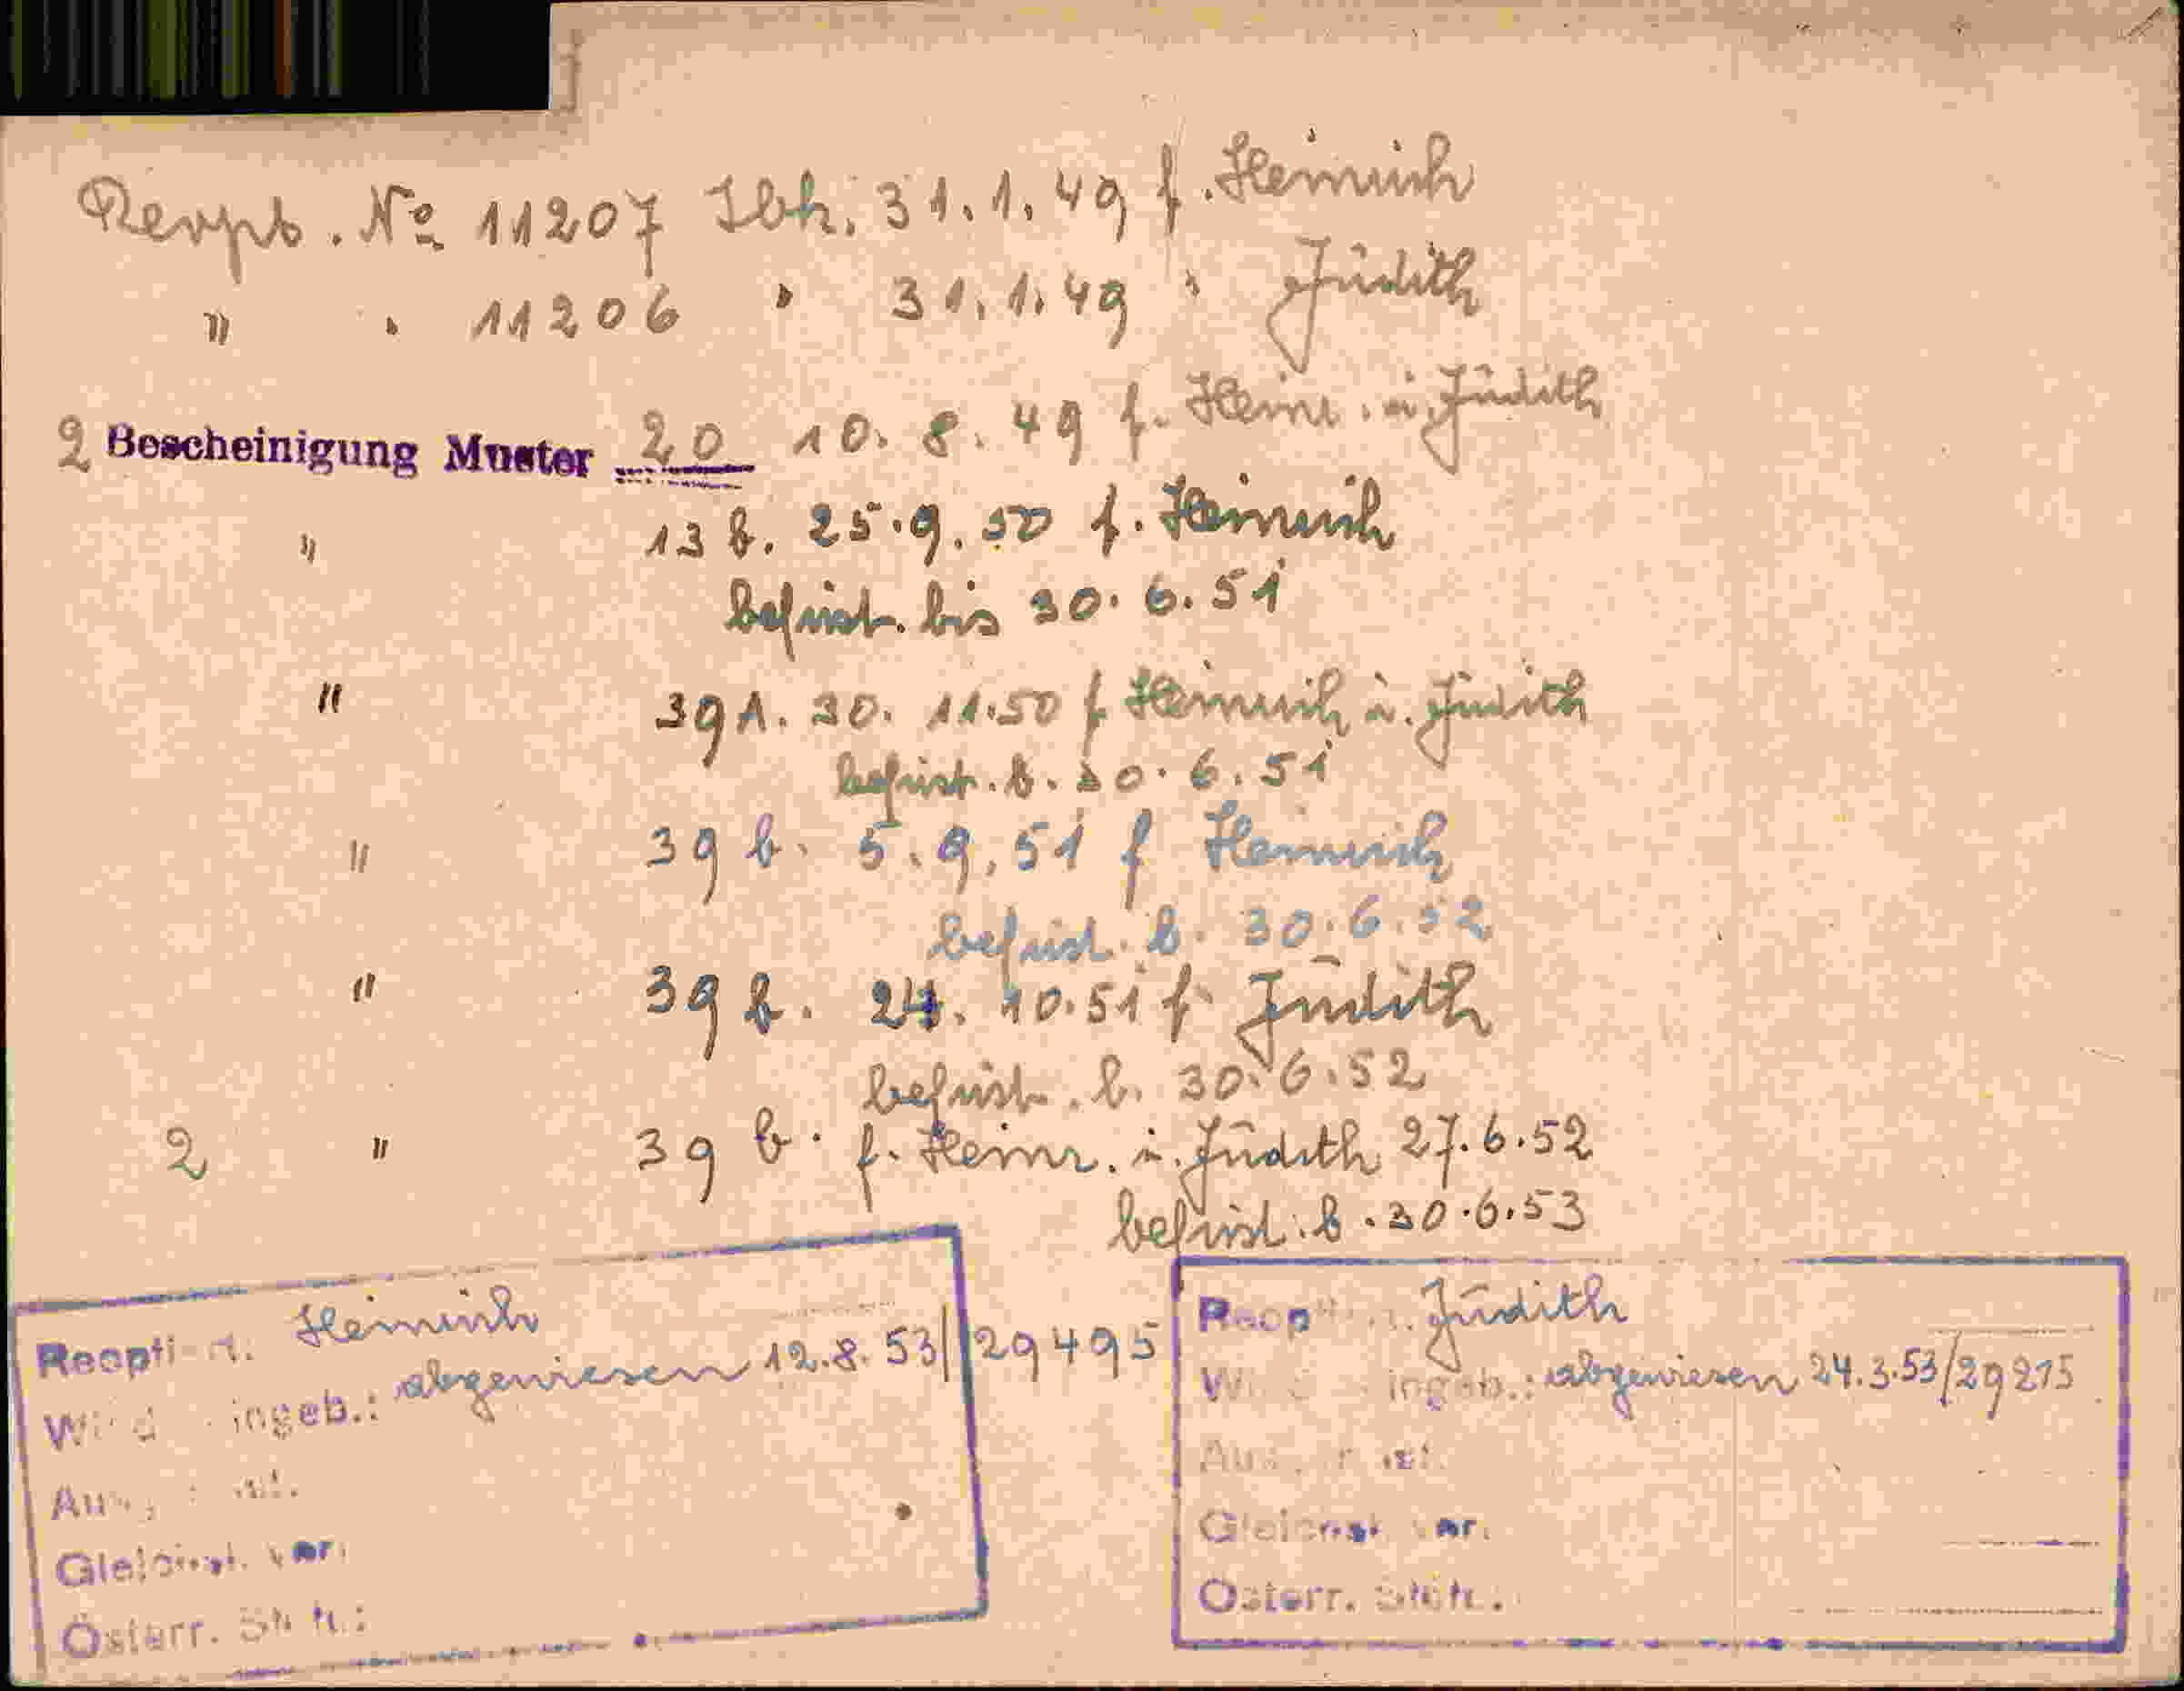 Rexpt. No 11207 Ibk. 31.1.49 f. Heinrich
" " 11206 " 31.1.49 " Judith
2 Bescheinigung Muster 20 10.8.49 f. Heinr. u. Judith
" 13 b. 25.9.50 f. Heinrich
befrist. bis 30.6.51
" 39 A. 30.11.50 f Heinrich u. Judith
befrist. b. 30.6.51
" 39 b. 5.9.51 f Heinrich
befrist. b. 30.6.52
" 39 b. 24.10.51 f Judith
befrist. b. 30.6.52
2 " 39 b. f. Heinr. u. Judith 27.6.52
befrist. b. 30.6.53
Heinrich
ingeb.: abgewiesen 12.8.53/29495
Österr.
Judith
ingeb.: abgewiesen 24.3.53/29215
Österr.